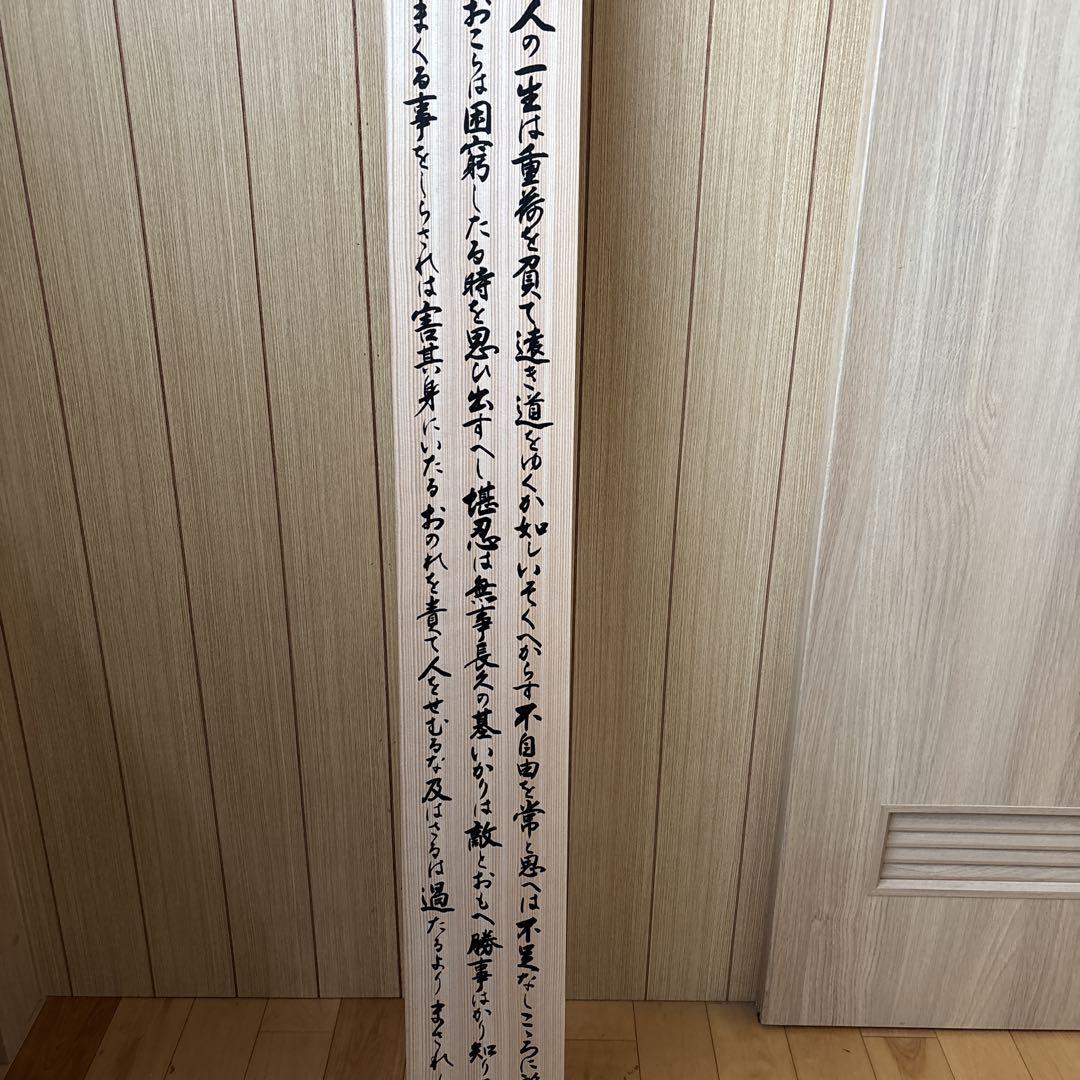 人の一生は重荷を負て遠き道をゆくか如しいそくへからす不自由を常と思へは不足なしこゝろに
おこらは困窮したる時を思ひ出すへし堪忍は無事長久の基いかりは敵とおもへ勝事はかり知り
まくる事をしらされは害其身にいたるおのれを責て人をせむるな及はさるは過たるよりまされ